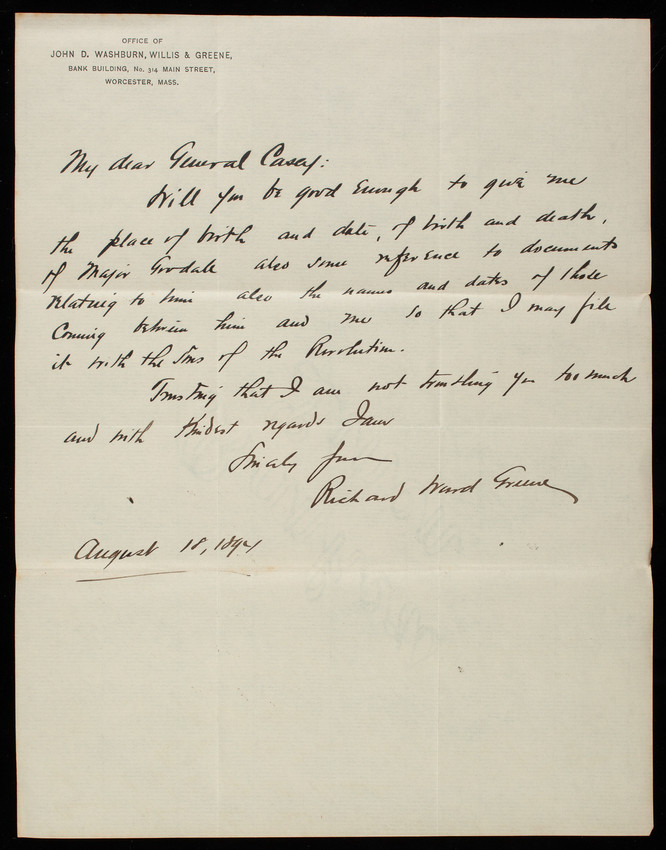 OFFICE OF
JOHN D. WASHBURN, WILLIS & GREENE,
BANK BUILDING, No. 314 MAIN STREET,
WORCESTER, MASS.
My dear General Casey:
Will you be good enough to give me
the place of birth and date, of birth and death,
of Major Goodale also some reference to documents
relating to him also the names and dates of those
Coming between him and me so that I may file
it with the Sons of the Revolution.
Trusting that I am not troubling you too much
and with Kindest regards I am
Sincerely yours
Richard Ward Greene
August 18, 1894